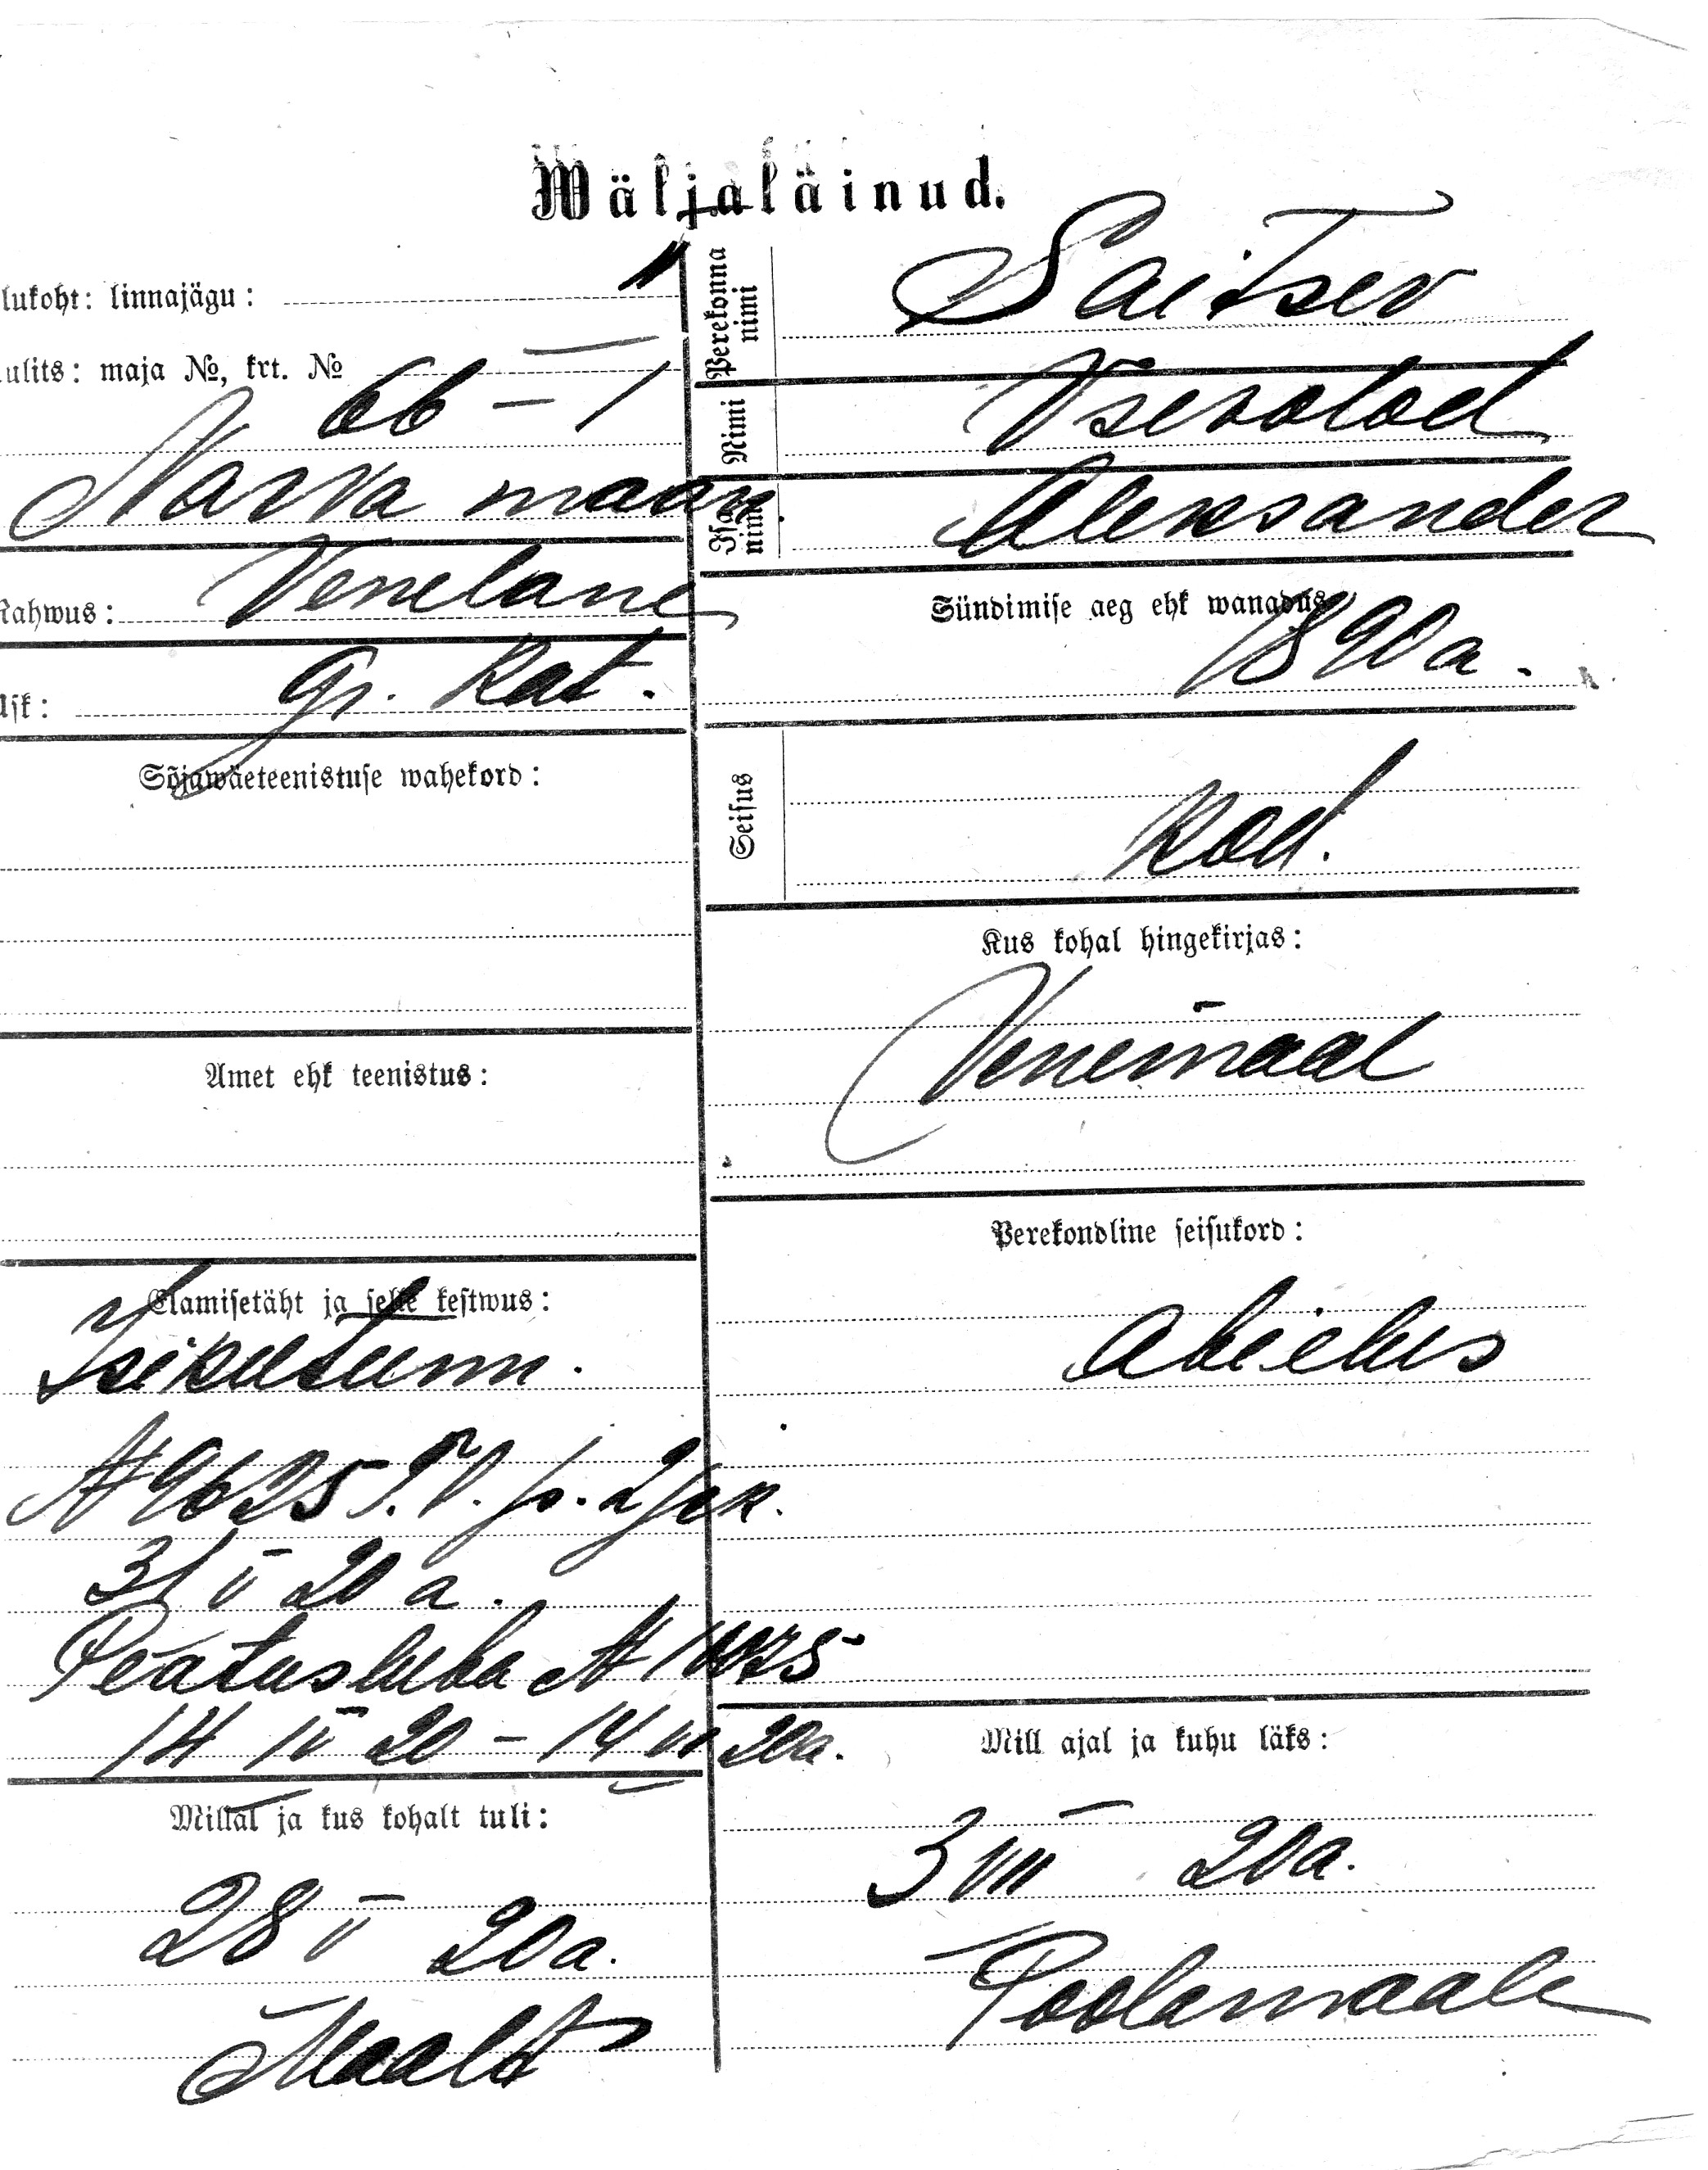 Wäljaläinud.
lukoht: linnajägu: 1
ulits: maja №, krt. №
66 – 1
Narva maan.
Rahwus: Venelane
Usk: Gr. Kat.
Sõjawäeteenistuse wahekord:
Amet ehk teenistus:
Elamisetäht ja selle kestwus:
Isikutunn.
№ 9625
31 V 20 a.
Peatusluba №
14 IV 20 – 14 VI 20a.
Millal ja kus kohalt tuli:
28 V 20a.
Maalt
Perekonna nimi Saitsev
Nimi Vsevolod
Isa nimi Aleksander
Sündimise aeg ehk wanadus
1890 a.
Seisus
Kod.
Kus kohal hingekirjas:
Venemaal
Perekondline seisukord:
abielus
Mill ajal ja kuhu läks:
3 VIII 20a.
Poolamaale